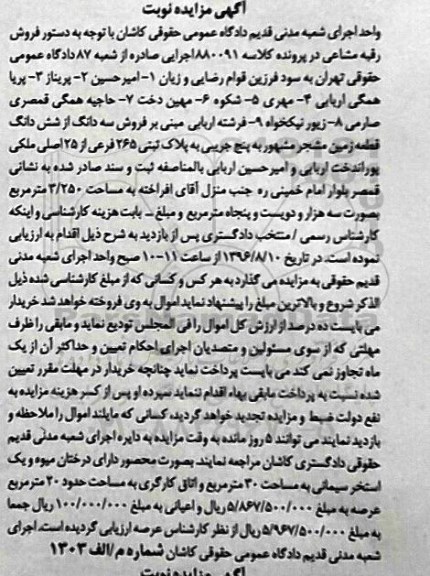 آگهی مزایده نوبت
واحد اجرای شعبه مدنی قدیم دادگاه عمومی حقوقی کاشان با توجه به دستور فروش
رقبه مشاعی در پرونده کلاسه ۸۸۰۰۹۱اجرایی صادره از شعبه ۸۷ دادگاه عمومی
حقوقی تهران به سود فرزین قوام رضایی و زیان ۱- امیرحسین ۲- پریناز ۳- پریا
همگی اربابی ۴- مهری ۵- شکوه ۶- مهین دخت ۷- حاجیه همگی قمصری
صارمی ۸- زیور نیکخواه ۹- فرشته اربابی مبنی بر فروش سه دانگ از شش دانگ
قطعه زمین مشجر مشهور به پنج جریبی به پلاک ثبتی ۲۶۵ فرعی از ۲۵ اصلی ملکی
پوراندخت اربابی و امیرحسین اربابی بالمناصفه ثبت و سند صادر شده به نشانی
قمصر بلوار امام خمینی ره جنب منزل آقای افراخته به مساحت ۳/۲۵۰ مترمربع
بصورت سه هزار و دویست و پنجاه مترمربع و مبلغ ـ بابت هزینه کارشناسی و اینکه
کارشناس رسمی / منتخب دادگستری پس از بازدید به شرح ذیل اقدام به ارزیابی
نموده است. در تاریخ ۱۳۹۶/۸/۱۰ از ساعت ۱۱-۱۰ صبح واحد اجرای شعبه مدنی
قدیم حقوقی به مزایده می گذارد به هر کس و کسانی که از مبلغ کارشناسی شده ذیل
الذکر شروع و بالاترین مبلغ را پیشنهاد نماید اموال به وی فروخته خواهد شد خریدار
می بایست ده درصد از ارزش کل اموال را فی المجلس تودیع نماید و مابقی را ظرف
مهلتی که از سوی مسئولین و متصدیان اجرای احکام تعیین و حداکثر آن از یک
ماه تجاوز نمی کند می بایست پرداخت نماید چنانچه خریدار در مهلت مقرر تعیین
شده نسبت به پرداخت مابقی بهاء اقدام ننماید سپرده او پس از کسر هزینه مزایده به
نفع دولت ضبط و مزایده تجدید خواهد گردید، کسانی که مایلند اموال را ملاحظه و
بازدید نمایند می توانند ۵ روز مانده به وقت مزایده به دایره اجرای شعبه مدنی قدیم
حقوقی دادگستری کاشان مراجعه نمایند. بصورت محصور دارای درختان میوه و یک
استخر سیمانی به مساحت ۳۰ مترمربع و اتاق کارگری به مساحت حدود ۲۰ مترمربع
عرصه به مبلغ ۵/۸۶۷/۵۰۰/۰۰۰ ریال و اعیانی به مبلغ ۱۰۰/۰۰۰/۰۰۰ ریال جمعا
به مبلغ ۵/۹۶۷/۵۰۰/۰۰۰ ریال از نظر کارشناس عرصه ارزیابی گردیده است. اجرای
شعبه مدنی قدیم دادگاه عمومی حقوقی کاشان شماره م/الف ۱۳۰۳
آگهی مزایده نوبت